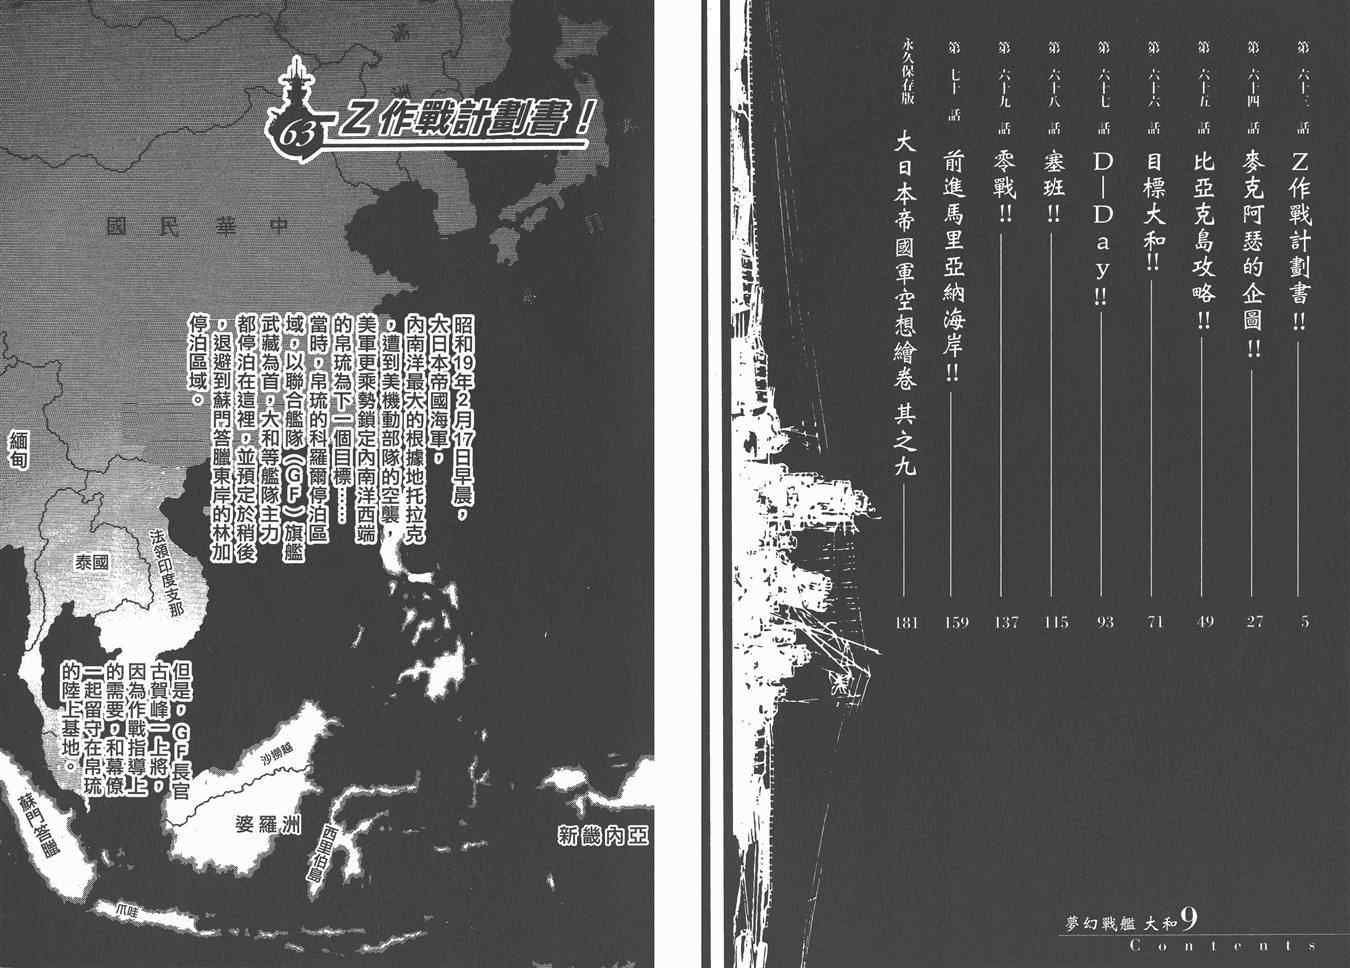 第六十三話 Z作戰計劃書!! 5
第六十四話 麥克阿瑟的企圖!! 27
第六十五話 比亞克島攻略!! 49
第六十六話 目標大和!! 71
第六十七話 D—Day!! 93
第六十八話 塞班!! 115
第六十九話 零戰!! 137
第七十話 前進馬里亞納海岸!! 159
永久保存版 大日本帝國軍空想繪卷 其之九 181
夢幻戰艦 大和9
Contents
63 Z作戰計劃書!
滿洲
中華民國
昭和19年2月17日早晨,
大日本帝國海軍,
內南洋最大的根據地托拉克
,遭到美機動部隊的空襲,
美軍更乘勢鎖定內南洋西端
的帛琉為下一個目標……
當時,帛琉的科羅爾停泊區
域,以聯合艦隊(GF)旗艦
武藏為首,大和等艦隊主力
都停泊在這裡,並預定於稍後
,退避到蘇門答臘東岸的林加
停泊區域。
緬甸
泰國
法領印度支那
但是,GF長官
古賀峰一上將,
因為作戰指導上
的需要,和幕僚
一起留守在帛琉
的陸上基地。
沙撈越
婆羅洲
西里伯島
新畿內亞
蘇門答臘
爪哇